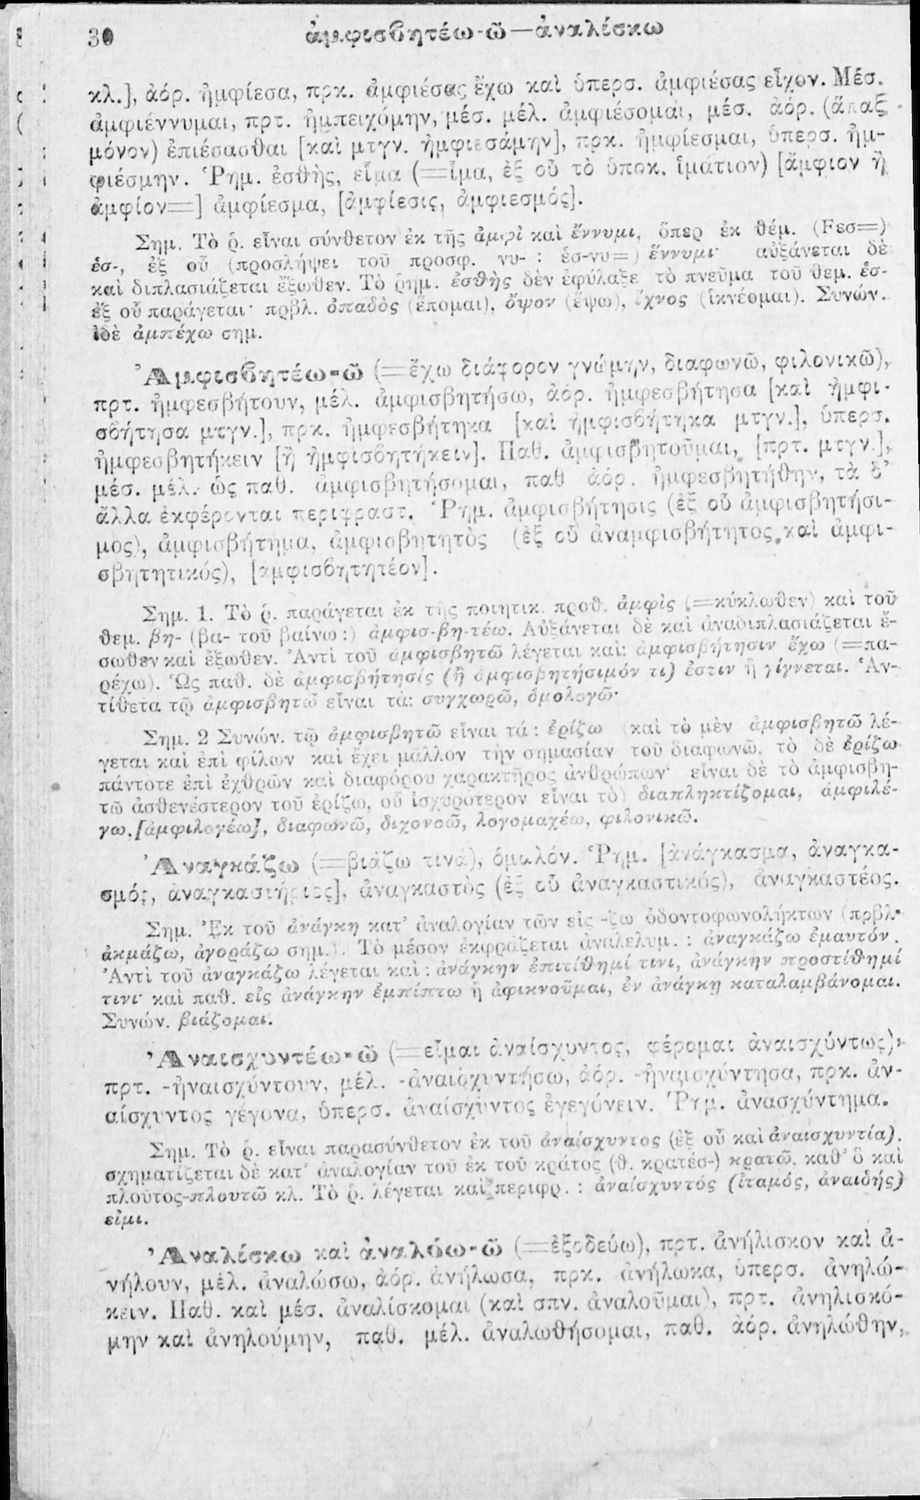 30 ἀμφισβητέω-ῶ—ἀναλίσκω
κλ.], ἀόρ. ἠμφίεσα, πρκ. ἀμφιέσας ἔχω καὶ ὑπερσ. ἀμφιέσας εἶχον. Μέσ.
ἀμφιέννυμαι, πρτ. ἠμπειχόμην, μέσ. μέλ. ἀμφιέσομαι, μέσ. ἀόρ. (ἅπαξ
μόνον) ἐπιέσασθαι [καὶ μτγν. ἠμφιεσάμην], πρκ. ἠμφίεσμαι, ὑπερσ. ἠμ-
φιέσμην. Ῥημ. ἐσθὴς, εἷμα (=ἷμα, ἐξ οὗ τὸ ὑποκ. ἱμάτιον) [ἄμφιον ἢ
ἀμφίον=] ἀμφίεσμα, [ἀμφίεσις, ἀμφιεσμός].
Σημ. Τὸ ῥ. εἶναι σύνθετον ἐκ τῆς ἀμφὶ καὶ ἕννυμι, ὅπερ ἐκ θέμ. (Fεσ=)
ἑσ-, ἐξ οὗ (προσλήψει τοῦ προσφ. νυ- : ἑσ-νυ=) ἕννυμι· αὐξάνεται δὲ
καὶ διπλασιάζεται ἔξωθεν. Τὸ ῥημ. ἐσθὴς δὲν ἐφύλαξε τὸ πνεῦμα τοῦ θεμ. ἑσ-
ἐξ οὗ παράγεται· πρβλ. ὀπαδὸς (ἕπομαι), ὄψον (ἕψω), ἴχνος (ἱκνέομαι). Συνών.
ἰδὲ ἀμπέχω σημ.
Ἀμφισβητέω-ῶ (=ἔχω διάφορον γνώμην, διαφωνῶ, φιλονικῶ),
πρτ. ἠμφεσβήτουν, μέλ. ἀμφισβητήσω, ἀόρ. ἠμφεσβήτησα [καὶ ἠμφι-
σβήτησα μτγν.], πρκ. ἠμφεσβήτηκα [καὶ ἠμφισβήτηκα μτγν.], ὑπερσ.
ἠμφεσβητήκειν [ἢ ἠμφισβητήκειν]. Παθ. ἀμφισβητοῦμαι, [πρτ. μτγν.],
μέσ. μέλ. ὡς παθ. ἀμφισβητήσομαι, παθ ἀόρ. ἠμφεσβητήθην, τὰ δ'
ἄλλα ἐκφέρονται περιφραστ. Ῥημ. ἀμφισβήτησις (ἐξ οὗ ἀμφισβητήσι-
μος), ἀμφισβήτημα, ἀμφισβητητὸς (ἐξ οὗ ἀναμφισβήτητος καὶ ἀμφι-
σβητητικός), [ἀμφισβητητέον].
Σημ. 1. Τὸ ῥ. παράγεται ἐκ τῆς ποιητικ. προθ. ἀμφὶς (=κύκλωθεν) καὶ τοῦ
θεμ. βη- (βα- τοῦ βαίνω:) ἀμφισ-βη-τέω. Αὐξάνεται δὲ καὶ ἀναδιπλασιάζεται ἔ-
σωθεν καὶ ἔξωθεν. Ἀντὶ τοῦ ἀμφισβητῶ λέγεται καὶ: ἀμφισβήτησιν ἔχω (=πα-
ρέχω). Ὡς παθ. δὲ ἀμφισβήτησίς (ἢ ἀμφισβητήσιμόν τι) ἐστιν ἢ γίγνεται. Ἀν-
τίθετα τῷ ἀμφισβητῶ εἶναι τὰ: συγχωρῶ, ὁμολογῶ·
Σημ. 2 Συνών. τῷ ἀμφισβητῶ εἶναι τά : ἐρίζω (καὶ τὸ μὲν ἀμφισβητῶ λέ-
γεται καὶ ἐπὶ φίλων καὶ ἔχει μᾶλλον τὴν σημασίαν τοῦ διαφωνῶ. τὸ δὲ ἐρίζω
πάντοτε ἐπὶ ἐχθρῶν καὶ διαφόρου χαρακτῆρος ἀνθρώπων· εἶναι δὲ τὸ ἀμφισβη-
τῶ ἀσθενέστερον τοῦ ἐρίζω, οὗ ἰσχυρότερον εἶναι τὸ) διαπληκτίζομαι, ἀμφιλέ-
γω, [ἀμφιλογέω], διαφωνῶ, διχονοῶ, λογομαχέω, φιλονικῶ.
Ἀναγκάζω (=βιάζω τινά), ὁμαλόν. Ῥημ. [ἀνάγκασμα, ἀναγκα-
σμός, ἀναγκαστήριος], ἀναγκαστὸς (ἐξ οὗ ἀναγκαστικός), ἀναγκαστέος.
Σημ. Ἐκ τοῦ ἀνάγκη κατ' ἀναλογίαν τῶν εἰς -ζω ὀδοντοφωνολήκτων (πρβλ.
ἀκμάζω, ἀγοράζω σημ.). Τὸ μέσον ἐκφράζεται ἀναλελυμ. : ἀναγκάζω ἐμαυτόν.
Ἀντὶ τοῦ ἀναγκάζω λέγεται καὶ : ἀνάγκην ἐπιτίθημί τινι, ἀνάγκην προστίθημί
τινι· καὶ παθ. εἰς ἀνάγκην ἐμπίπτω ἢ ἀφικνοῦμαι, ἐν ἀνάγκῃ καταλαμβάνομαι.
Συνών. βιάζομαι.
Ἀναισχυντέω-ῶ (=εἶμαι ἀναίσχυντος, φέρομαι ἀναισχύντως),
πρτ. -ἠναισχύντουν, μέλ. -ἀναισχυντήσω, ἀόρ. -ἠναισχύντησα, πρκ. ἀν-
αίσχυντος γέγονα, ὑπερσ. ἀναίσχυντος ἐγεγόνειν. Ῥημ. ἀνασχύντημα.
Σημ. Τὸ ῥ. εἶναι παρασύνθετον ἐκ τοῦ ἀναίσχυντος (ἐξ οὗ καὶ ἀναισχυντία).
σχηματίζεται δὲ κατ' ἀναλογίαν τοῦ ἐκ τοῦ κράτος (θ. κρατέσ-) κρατῶ, καθ' ὃ καὶ
πλοῦτος-πλουτῶ κλ. Τὸ ῥ. λέγεται καὶ περιφρ. : ἀναίσχυντός (ἰταμός, ἀναιδής)
εἰμι.
Ἀναλίσκω καὶ ἀναλόω-ῶ (=ἐξοδεύω), πρτ. ἀνήλισκον καὶ ἀ-
νήλουν, μέλ. ἀναλώσω, ἀόρ. ἀνήλωσα, πρκ. ἀνήλωκα, ὑπερσ. ἀνηλώ-
κειν. Παθ. καὶ μέσ. ἀναλίσκομαι (καὶ σπν. ἀναλοῦμαι), πρτ. ἀνηλισκό-
μην καὶ ἀνηλούμην, παθ. μέλ. ἀναλωθήσομαι, παθ. ἀόρ. ἀνηλώθην,